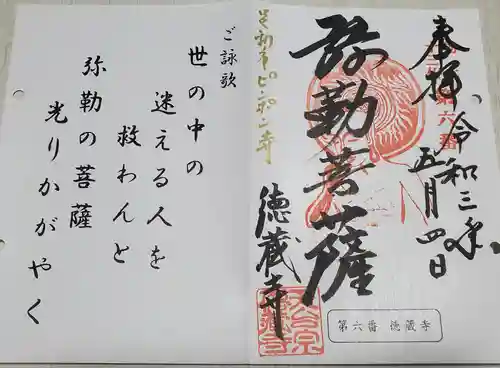 奉拝
令和三年
五月四日
第六番
弥勒菩薩
徳蔵寺
第六番 徳蔵寺
ご詠歌
世の中の
迷える人を
救わんと
弥勒の菩薩
光りかがやく